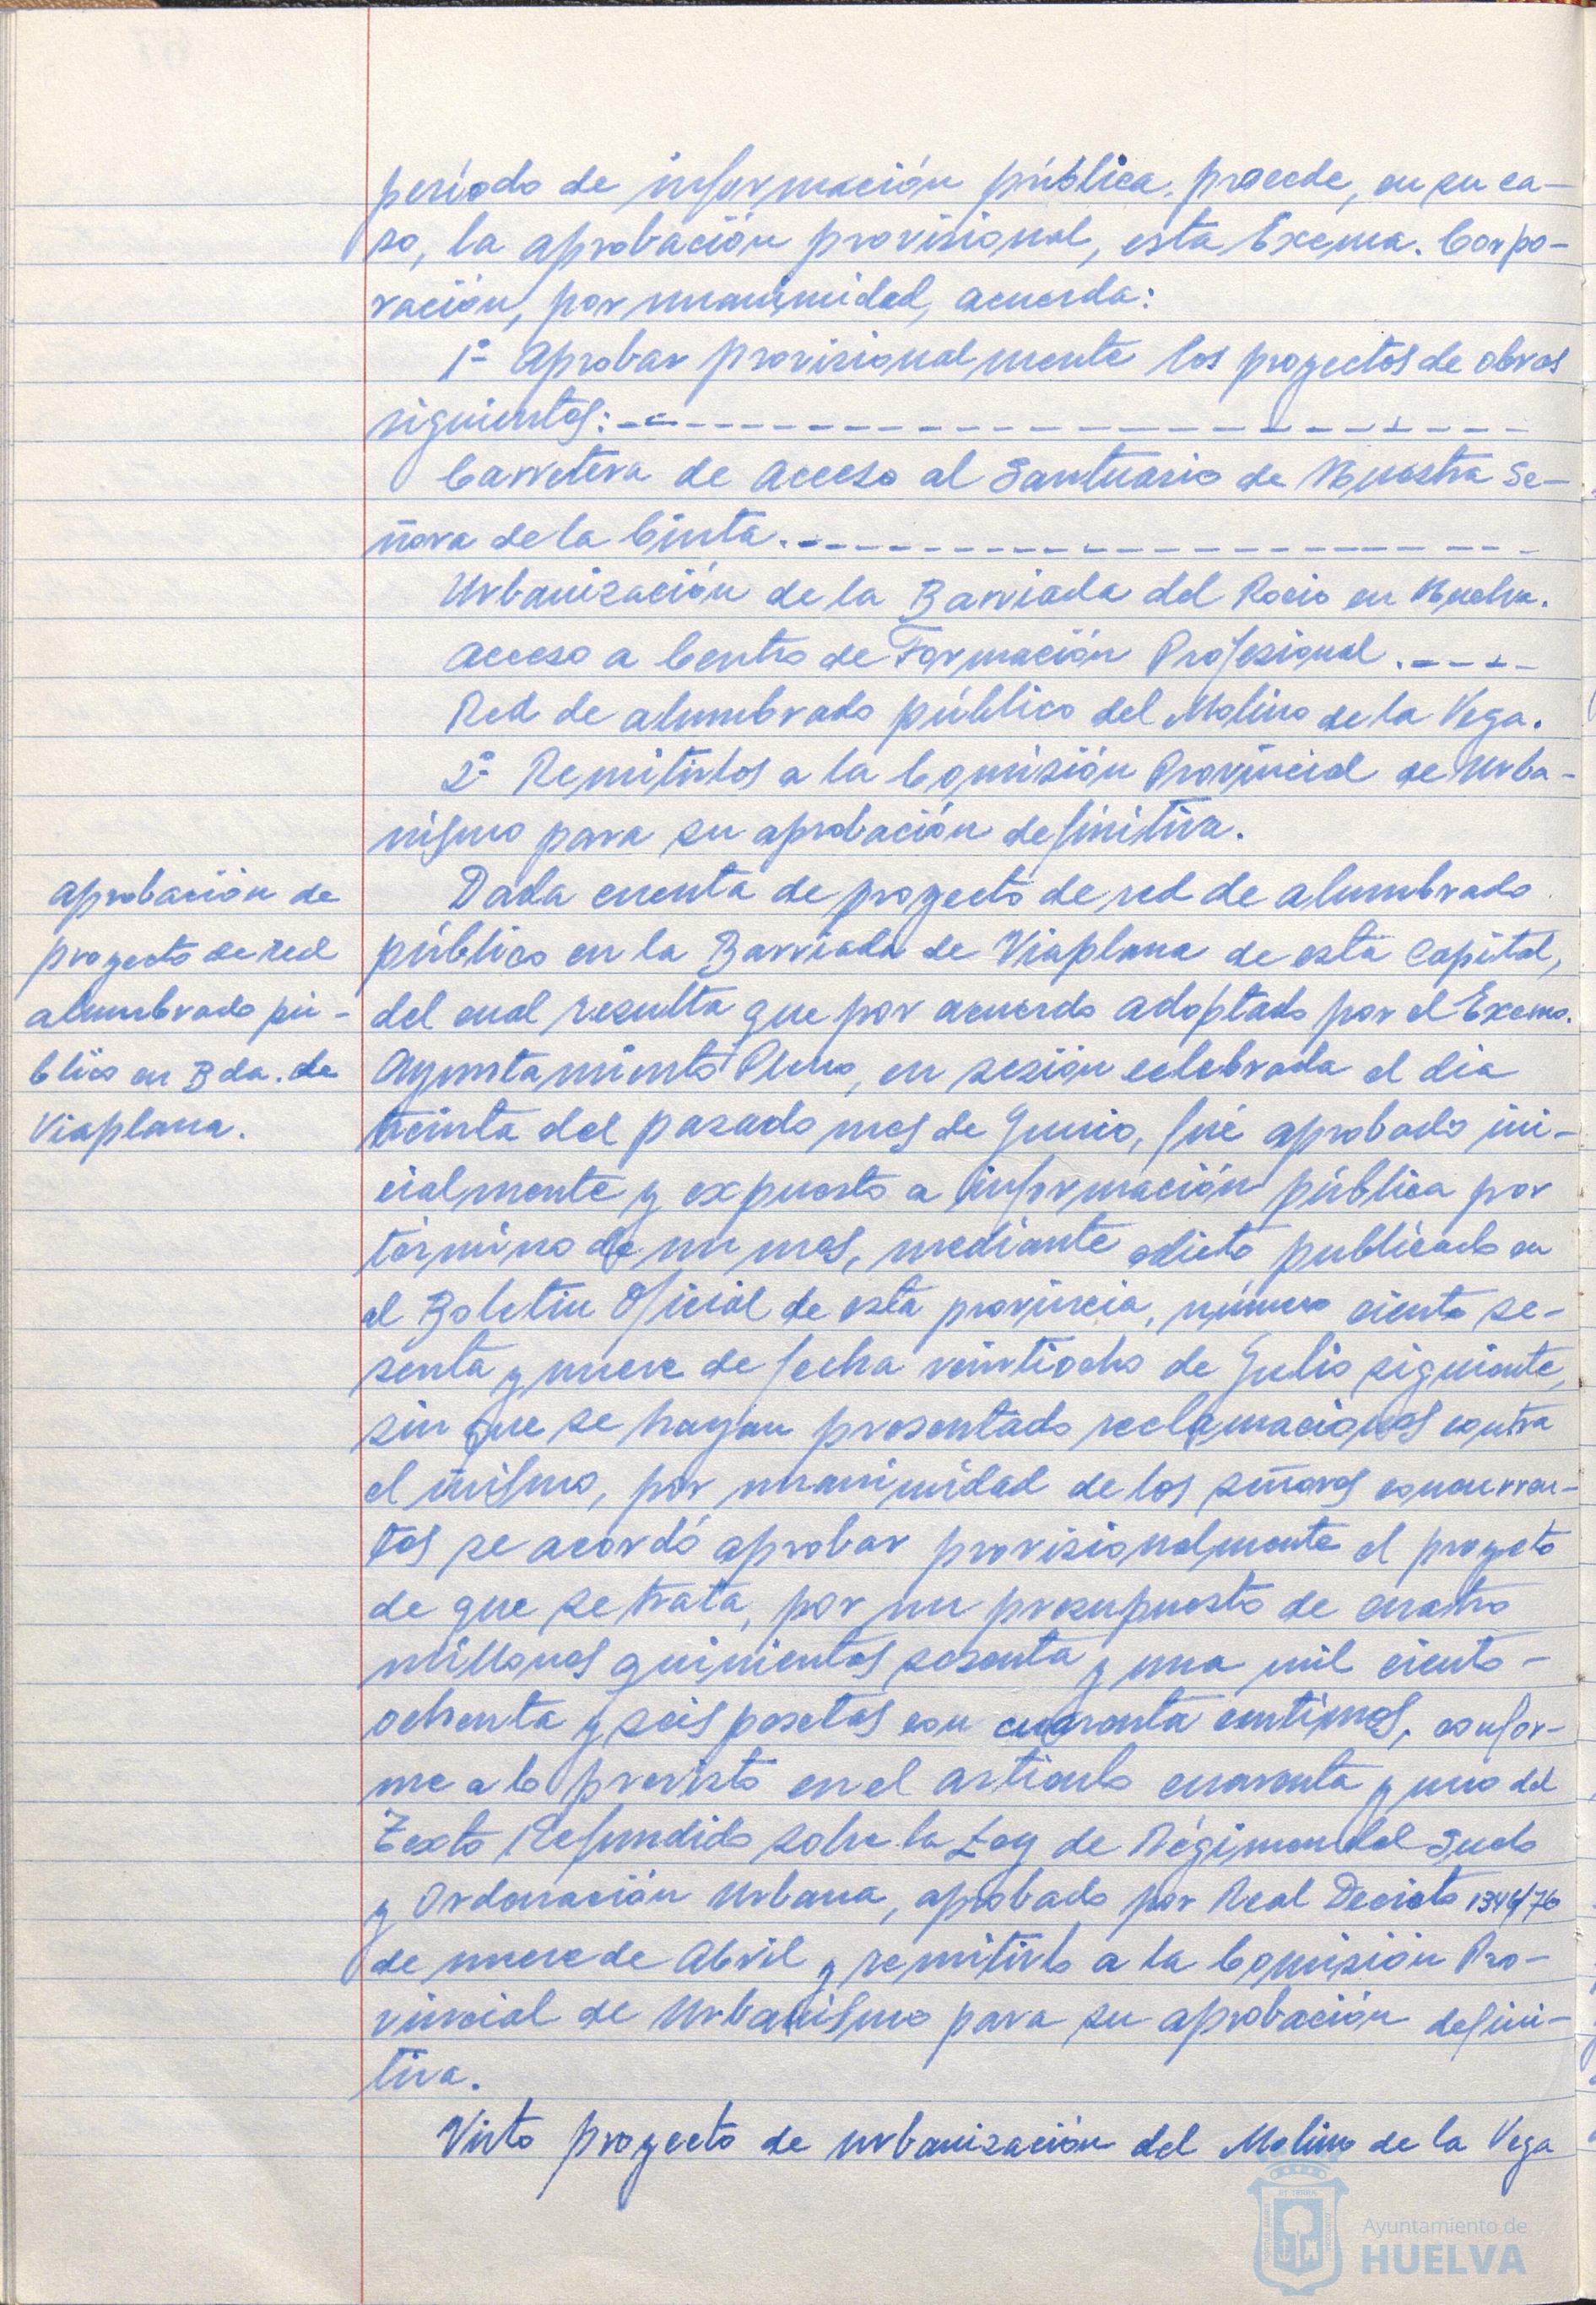 período de información pública, procede, en su ca-
so, la aprobación provisional, esta Excma. Corpo-
ración, por unanimidad, acuerda:
1º- Aprobar provisionalmente los proyectos de obras
siguientes:
Carretera de Acceso al Santuario de Nuestra Se-
ñora de la Cinta.
Urbanización de la Barriada del Rocio en Huelva.
Acceso a Centro de Formación Profesional.
Red de alumbrado público del Molino de la Vega.
2º- Remitirlos a la Comisión Provincial de Urba-
nismo para su aprobación definitiva.
Aprobación de
proyecto de red
alumbrado pú-
blico en Bda. de
Viaplana.
Dada cuenta de proyecto de red de alumbrado
público en la Barriada de Viaplana de esta Capital,
del cual resulta que por acuerdo adoptado por el Excmo.
Ayuntamiento Pleno, en sesión celebrada el dia
treinta del pasado mes de Junio, fué aprobado ini-
cialmente y expuesto a información pública por
término de un mes, mediante edicto publicado en
el Boletin Oficial de esta provincia, número ciento se-
senta y nueve de fecha veintiocho de Julio siguiente,
sin que se hayan presentado reclamaciones contra
el mismo, por unanimidad de los señores concurren-
tes se acordó aprobar provisionalmente el proyecto
de que se trata, por un presupuesto de cuatro
millones quinientas sesenta y una mil ciento-
ochenta y seis pesetas con cuarenta centimos, confor-
me a lo previsto en el articulo cuarenta y uno del
Texto Refundido sobre la Ley de Régimen del Suelo
y Ordenación Urbana, aprobado por Real Decreto 1346/76
de nueve de Abril y remitirlo a la Comisión Pro-
vincial de Urbanismo para su aprobación defini-
tiva.
Visto proyecto de urbanización del Molino de la Vega
Ayuntamiento de
HUELVA